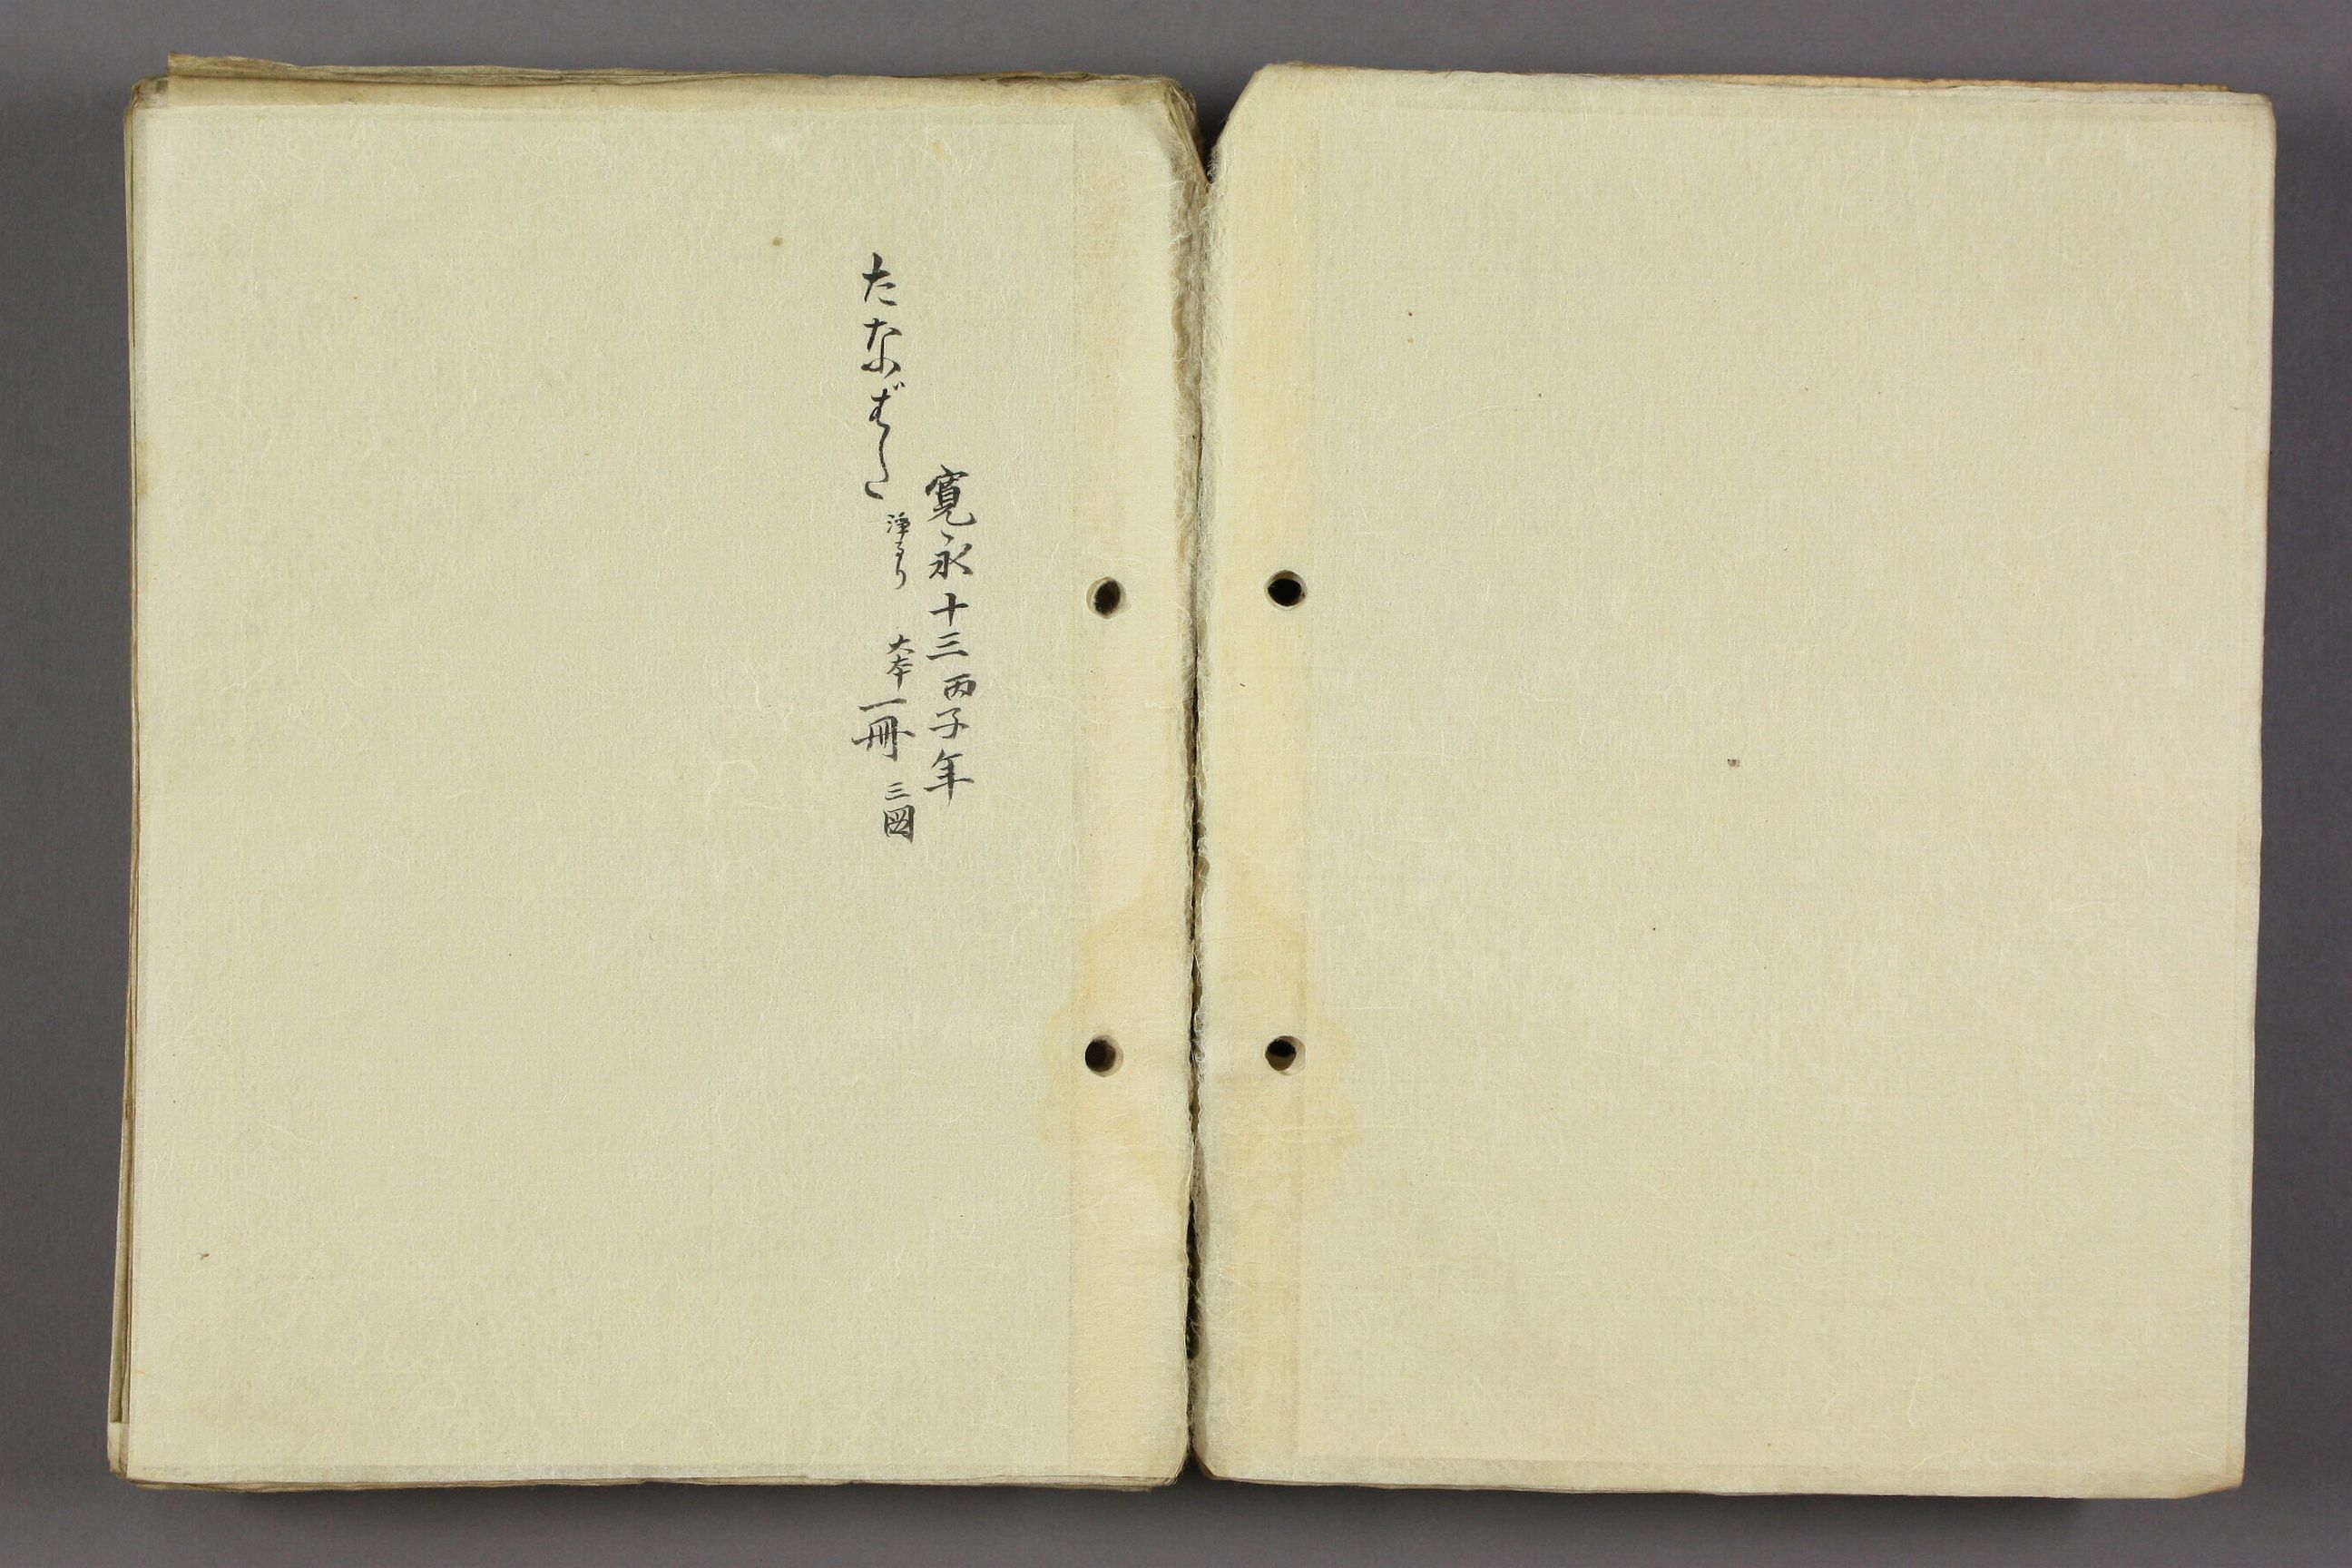 寛永十三丙子年
たなばた 浄るり 大本一冊 三図